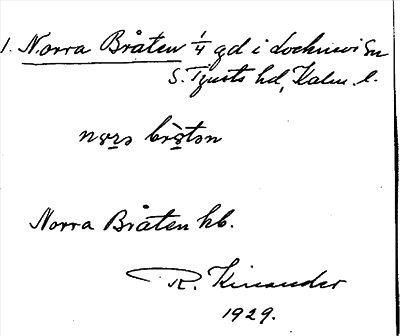 1. Norra Bråten 1/4 gd i Lochnevi Sn
S. Tjusts hd, Kalm. l.
nɷrə brɷ̀tən
Norra Bråten kb.
R. Kinander
1929.